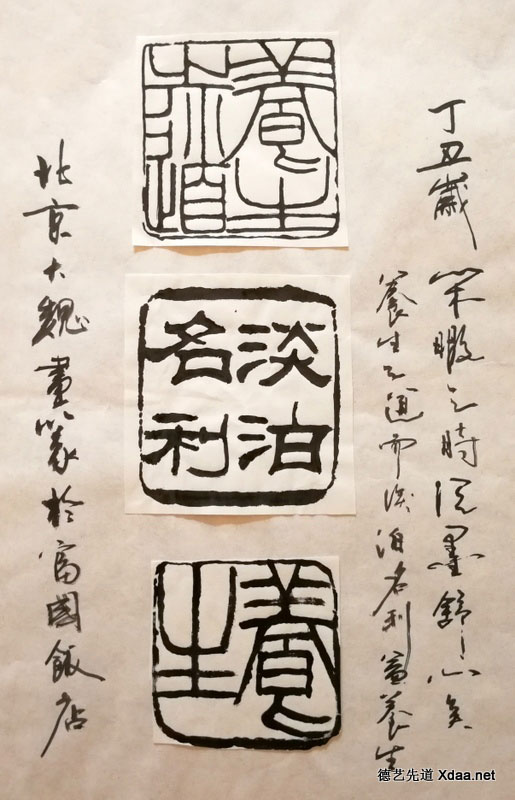 丁丑歲 閑暇之時 墨舒心矣
養生之道而淡泊名利益養生
養生 道
淡泊名利
養生
北京大魏畫篆於富國飯店
德艺先道 Xdaa.net